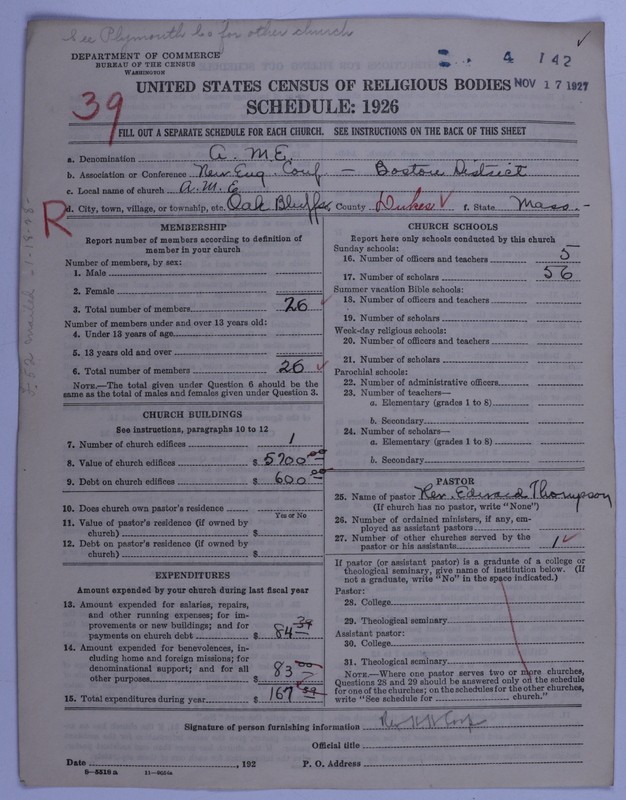 See Plymouth Co for other church
✓
DEPARTMENT OF COMMERCE
BUREAU OF THE CENSUS
WASHINGTON
4 142
UNITED STATES CENSUS OF RELIGIOUS BODIES NOV 17 1927
39
SCHEDULE: 1926
FILL OUT A SEPARATE SCHEDULE FOR EACH CHURCH. SEE INSTRUCTIONS ON THE BACK OF THIS SHEET
a. Denomination A. M. E.
b. Association or Conference New Eng. Conf — Boston District
c. Local name of church A. M. E
d. City, town, village, or township, etc. Oak Bluffs, County Dukes ✓ f. State Mass. -
R
MEMBERSHIP
Report number of members according to definition of
member in your church
Number of members, by sex:
1. Male
2. Female
3. Total number of members 26 ✓
Number of members under and over 13 years old:
4. Under 13 years of age
5. 13 years old and over
6. Total number of members 26 ✓
NOTE.—The total given under Question 6 should be the
same as the total of males and females given under Question 3.
CHURCH BUILDINGS
See instructions, paragraphs 10 to 12
7. Number of church edifices 1
8. Value of church edifices $ 5700 00
9. Debt on church edifices $ 600 00
10. Does church own pastor's residence
Yes or No
11. Value of pastor's residence (if owned by
church) $
12. Debt on pastor's residence (if owned by
church) $
EXPENDITURES
Amount expended by your church during last fiscal year
13. Amount expended for salaries, repairs,
and other running expenses; for im-
provements or new buildings; and for
payments on church debt $ 84 34
14. Amount expended for benevolences, in-
cluding home and foreign missions; for
denominational support; and for all
other purposes $ 83 00
15. Total expenditures during year $ 167
CHURCH SCHOOLS
Report here only schools conducted by this church
Sunday schools:
16. Number of officers and teachers 5
17. Number of scholars 56
Summer vacation Bible schools:
18. Number of officers and teachers
19. Number of scholars
Week-day religious schools:
20. Number of officers and teachers
21. Number of scholars
Parochial schools:
22. Number of administrative officers
23. Number of teachers—
a. Elementary (grades 1 to 8)
b. Secondary
24. Number of scholars—
a. Elementary (grades 1 to 8)
b. Secondary
PASTOR
25. Name of pastor Rev. Edward Thompson
(If church has no pastor, write "None")
26. Number of ordained ministers, if any, em-
ployed as assistant pastors
27. Number of other churches served by the
pastor or his assistants 1 ✓
If pastor (or assistant pastor) is a graduate of a college or
theological seminary, give name of institution below. (If
not a graduate, write "No" in the space indicated.)
Pastor:
28. College
29. Theological seminary
Assistant pastor:
30. College
31. Theological seminary
NOTE.—Where one pastor serves two or more churches,
Questions 28 and 29 should be answered only on the schedule
for one of the churches; on the schedules for the other churches,
write "See schedule for church."
Signature of person furnishing information Rev
Official title
Date , 192 P. O. Address
8—5518a 11—9054a